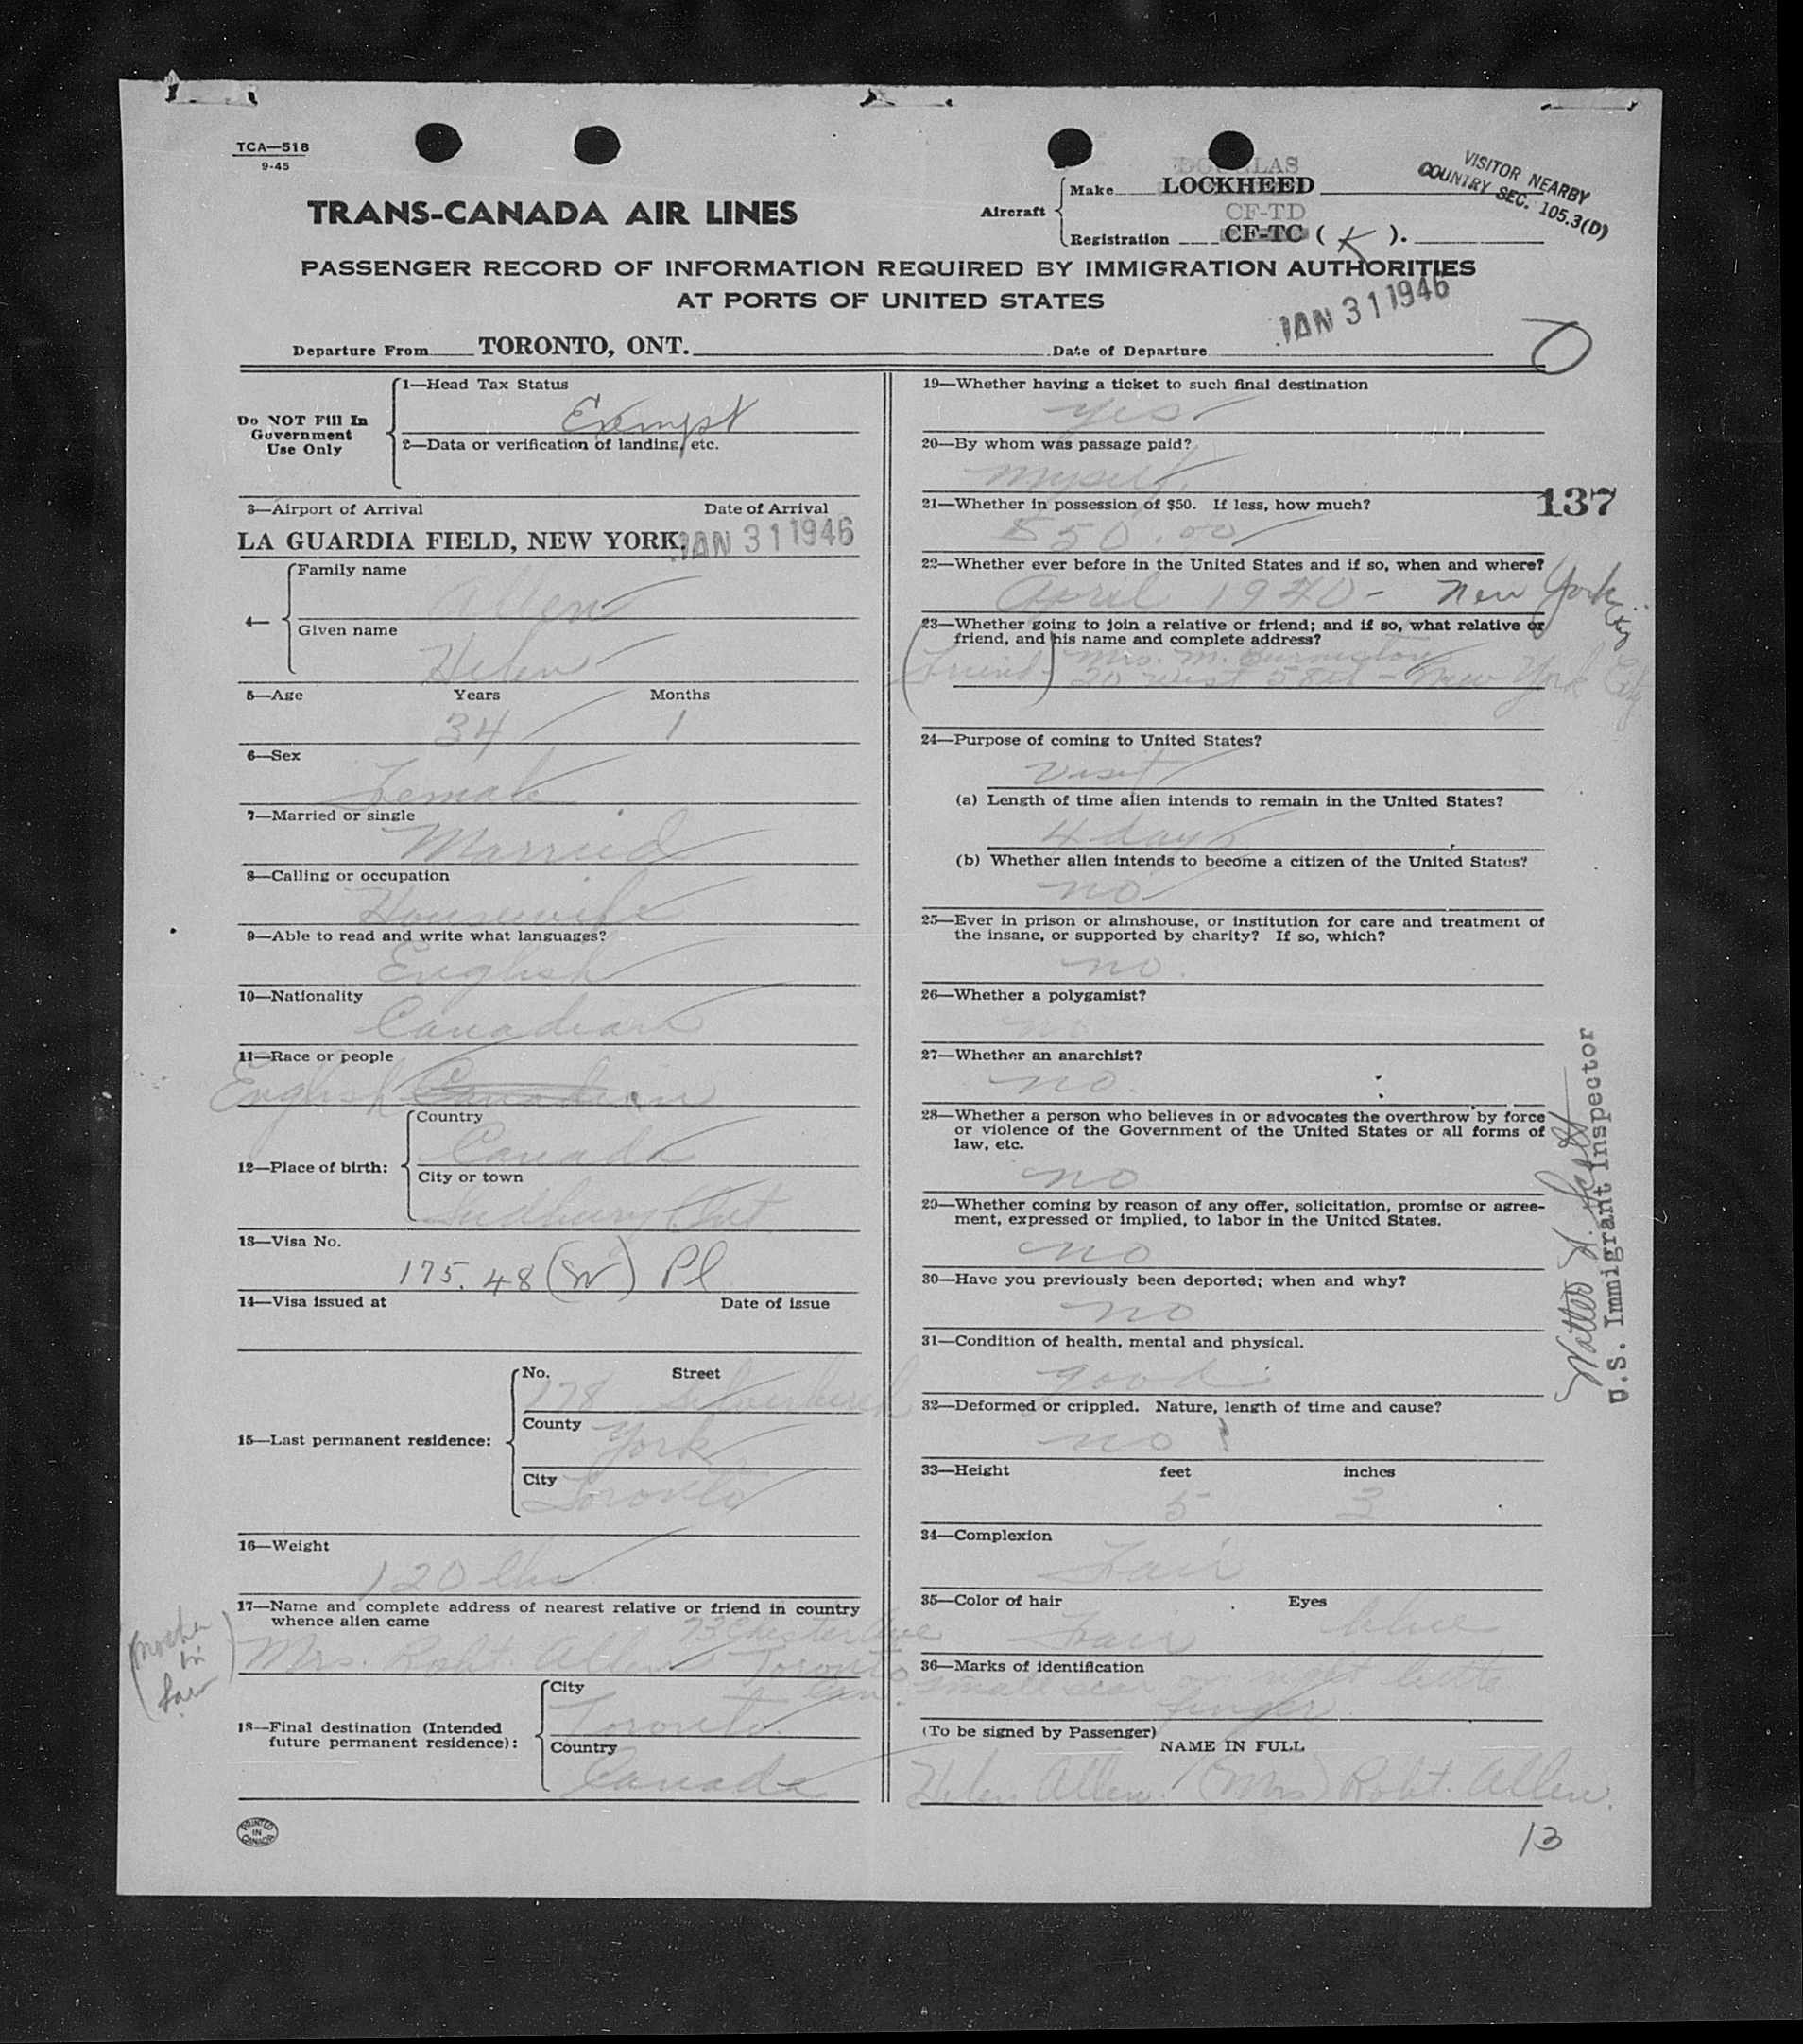 TCA—518
9-45
TRANS-CANADA AIR LINES
Aircraft
DOUGLAS
Make LOCKHEED
CF-TD
Registration CF-TC ( K ).
VISITOR NEARBY
COUNTRY SEC. 105.3(D)
PASSENGER RECORD OF INFORMATION REQUIRED BY IMMIGRATION AUTHORITIES
AT PORTS OF UNITED STATES
JAN 31 1946
Departure From TORONTO, ONT. Date of Departure
Do NOT Fill In
Government
Use Only
1—Head Tax Status
Exempt
2—Data or verification of landing, etc.
3—Airport of Arrival Date of Arrival
LA GUARDIA FIELD, NEW YORK. JAN 31 1946
4—
Family name
Allen
Given name
Helen
5—Age Years Months
34 1
6—Sex
Female
7—Married or single
Married
8—Calling or occupation
Housewife
9—Able to read and write what languages?
English
10—Nationality
Canadian
11—Race or people
English Canadian
12—Place of birth:
Country
Canada
City or town
Sudbury Ont
13—Visa No.
175.48 (SW) Pl
14—Visa issued at Date of issue
15—Last permanent residence:
No. Street
178 Silverbirch
County York
City Toronto
16—Weight
120 lbs
17—Name and complete address of nearest relative or friend in country
whence alien came
73 Chester Ave
(mother in law) Mrs. Robt. Allen Toronto
Can.
18—Final destination (Intended
future permanent residence):
City
Toronto
Country
Canada
PRINTED
IN
CANADA
19—Whether having a ticket to such final destination
yes
20—By whom was passage paid?
myself
21—Whether in possession of $50. If less, how much?
137
$50.00
22—Whether ever before in the United States and if so, when and where?
April 1940 - New York City
23—Whether going to join a relative or friend; and if so, what relative or
friend, and his name and complete address?
(Friend) Mrs. M.
20 West 58th - New York City
24—Purpose of coming to United States?
Visit
(a) Length of time alien intends to remain in the United States?
4 days
(b) Whether alien intends to become a citizen of the United States?
no
25—Ever in prison or almshouse, or institution for care and treatment of
the insane, or supported by charity? If so, which?
no.
26—Whether a polygamist?
no
27—Whether an anarchist?
no.
28—Whether a person who believes in or advocates the overthrow by force
or violence of the Government of the United States or all forms of
law, etc.
no
29—Whether coming by reason of any offer, solicitation, promise or agree-
ment, expressed or implied, to labor in the United States.
no
30—Have you previously been deported; when and why?
no
31—Condition of health, mental and physical.
good
32—Deformed or crippled. Nature, length of time and cause?
no
33—Height feet inches
5 3
34—Complexion
Fair
35—Color of hair Eyes
Fair blue
36—Marks of identification
small scar on right little
finger
(To be signed by Passenger)
NAME IN FULL
Helen Allen. (Mrs) Robt. Allen.
13
U.S. Immigrant Inspector